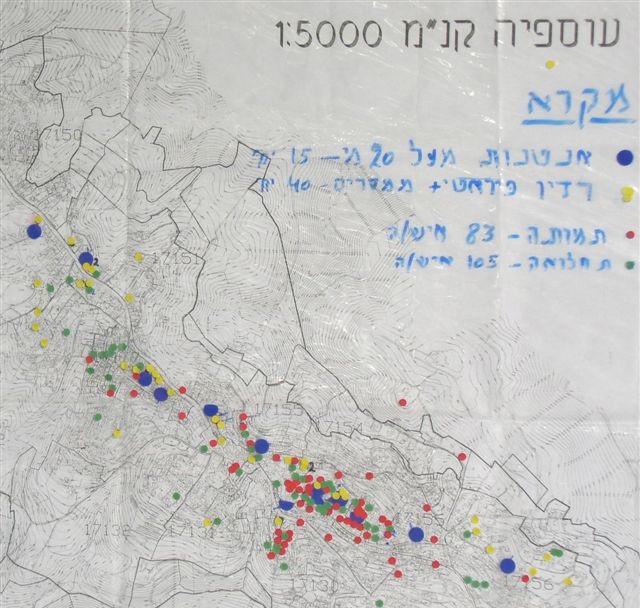 עוספיה קנ"מ 1:5000
מקרא
אנטנות מעל 20 מ׳ - 15 יח׳
רדיו פיראטי + ממסרים - 40 יח׳
תמותה - 83 איש/ה
תחלואה - 105 איש/ה
150
17151
17155
17154
1713
156
2
2